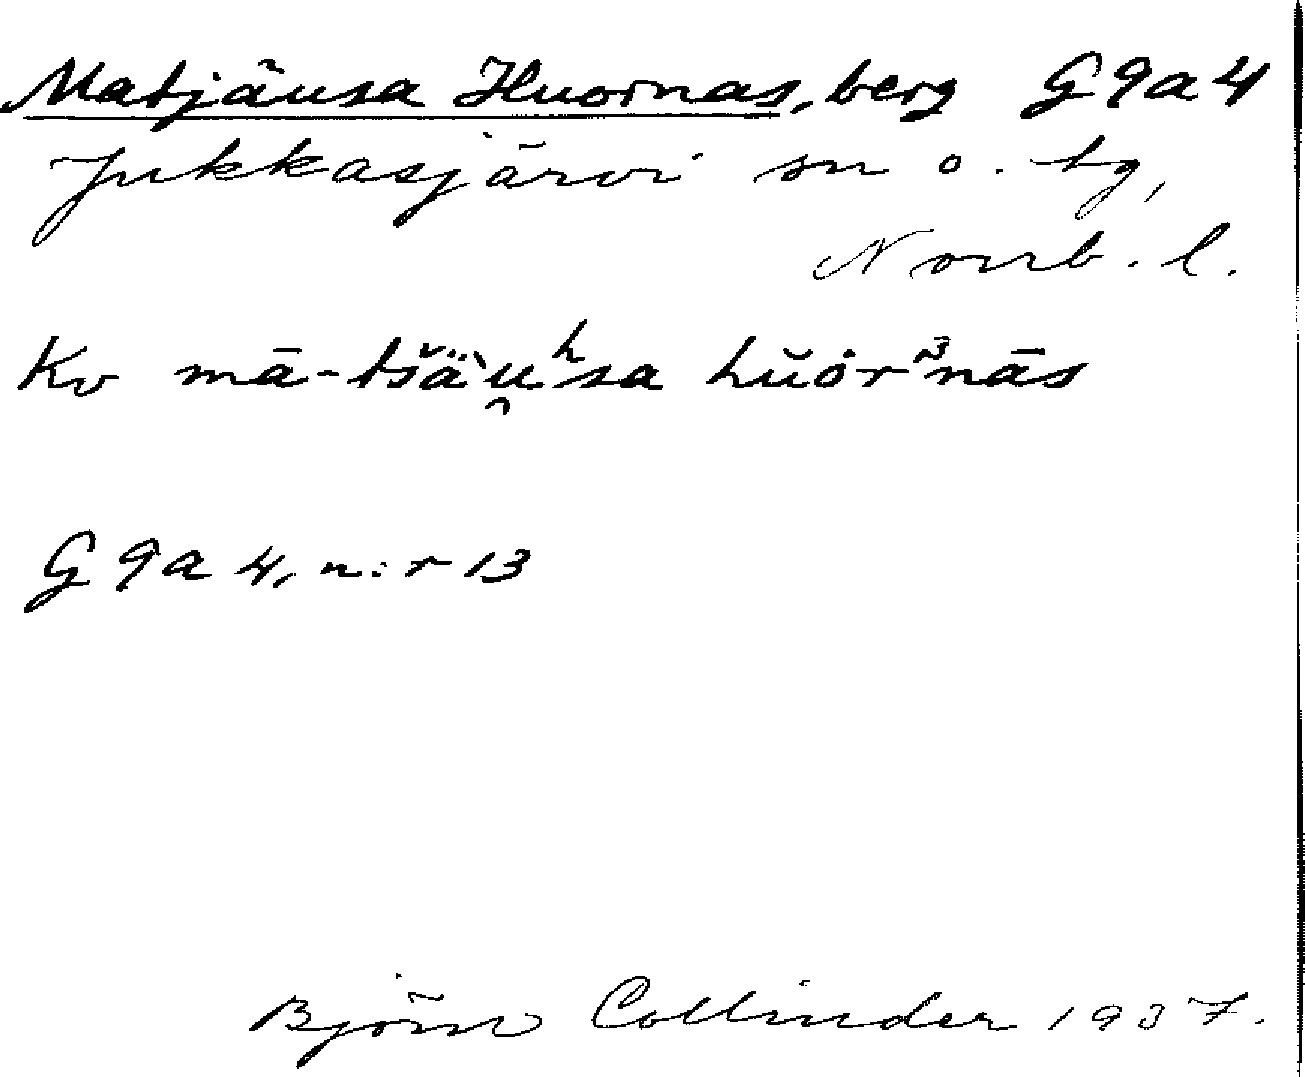 Matjäusa Huornas, berg G9a4
Jukkasjärvi sn o. tg,
Norrb. l.
Kv mā-tšä̀u̯ʰsa hŭȯrᵌnās
G9a4, n:r 13
Björn Collinder 1937.